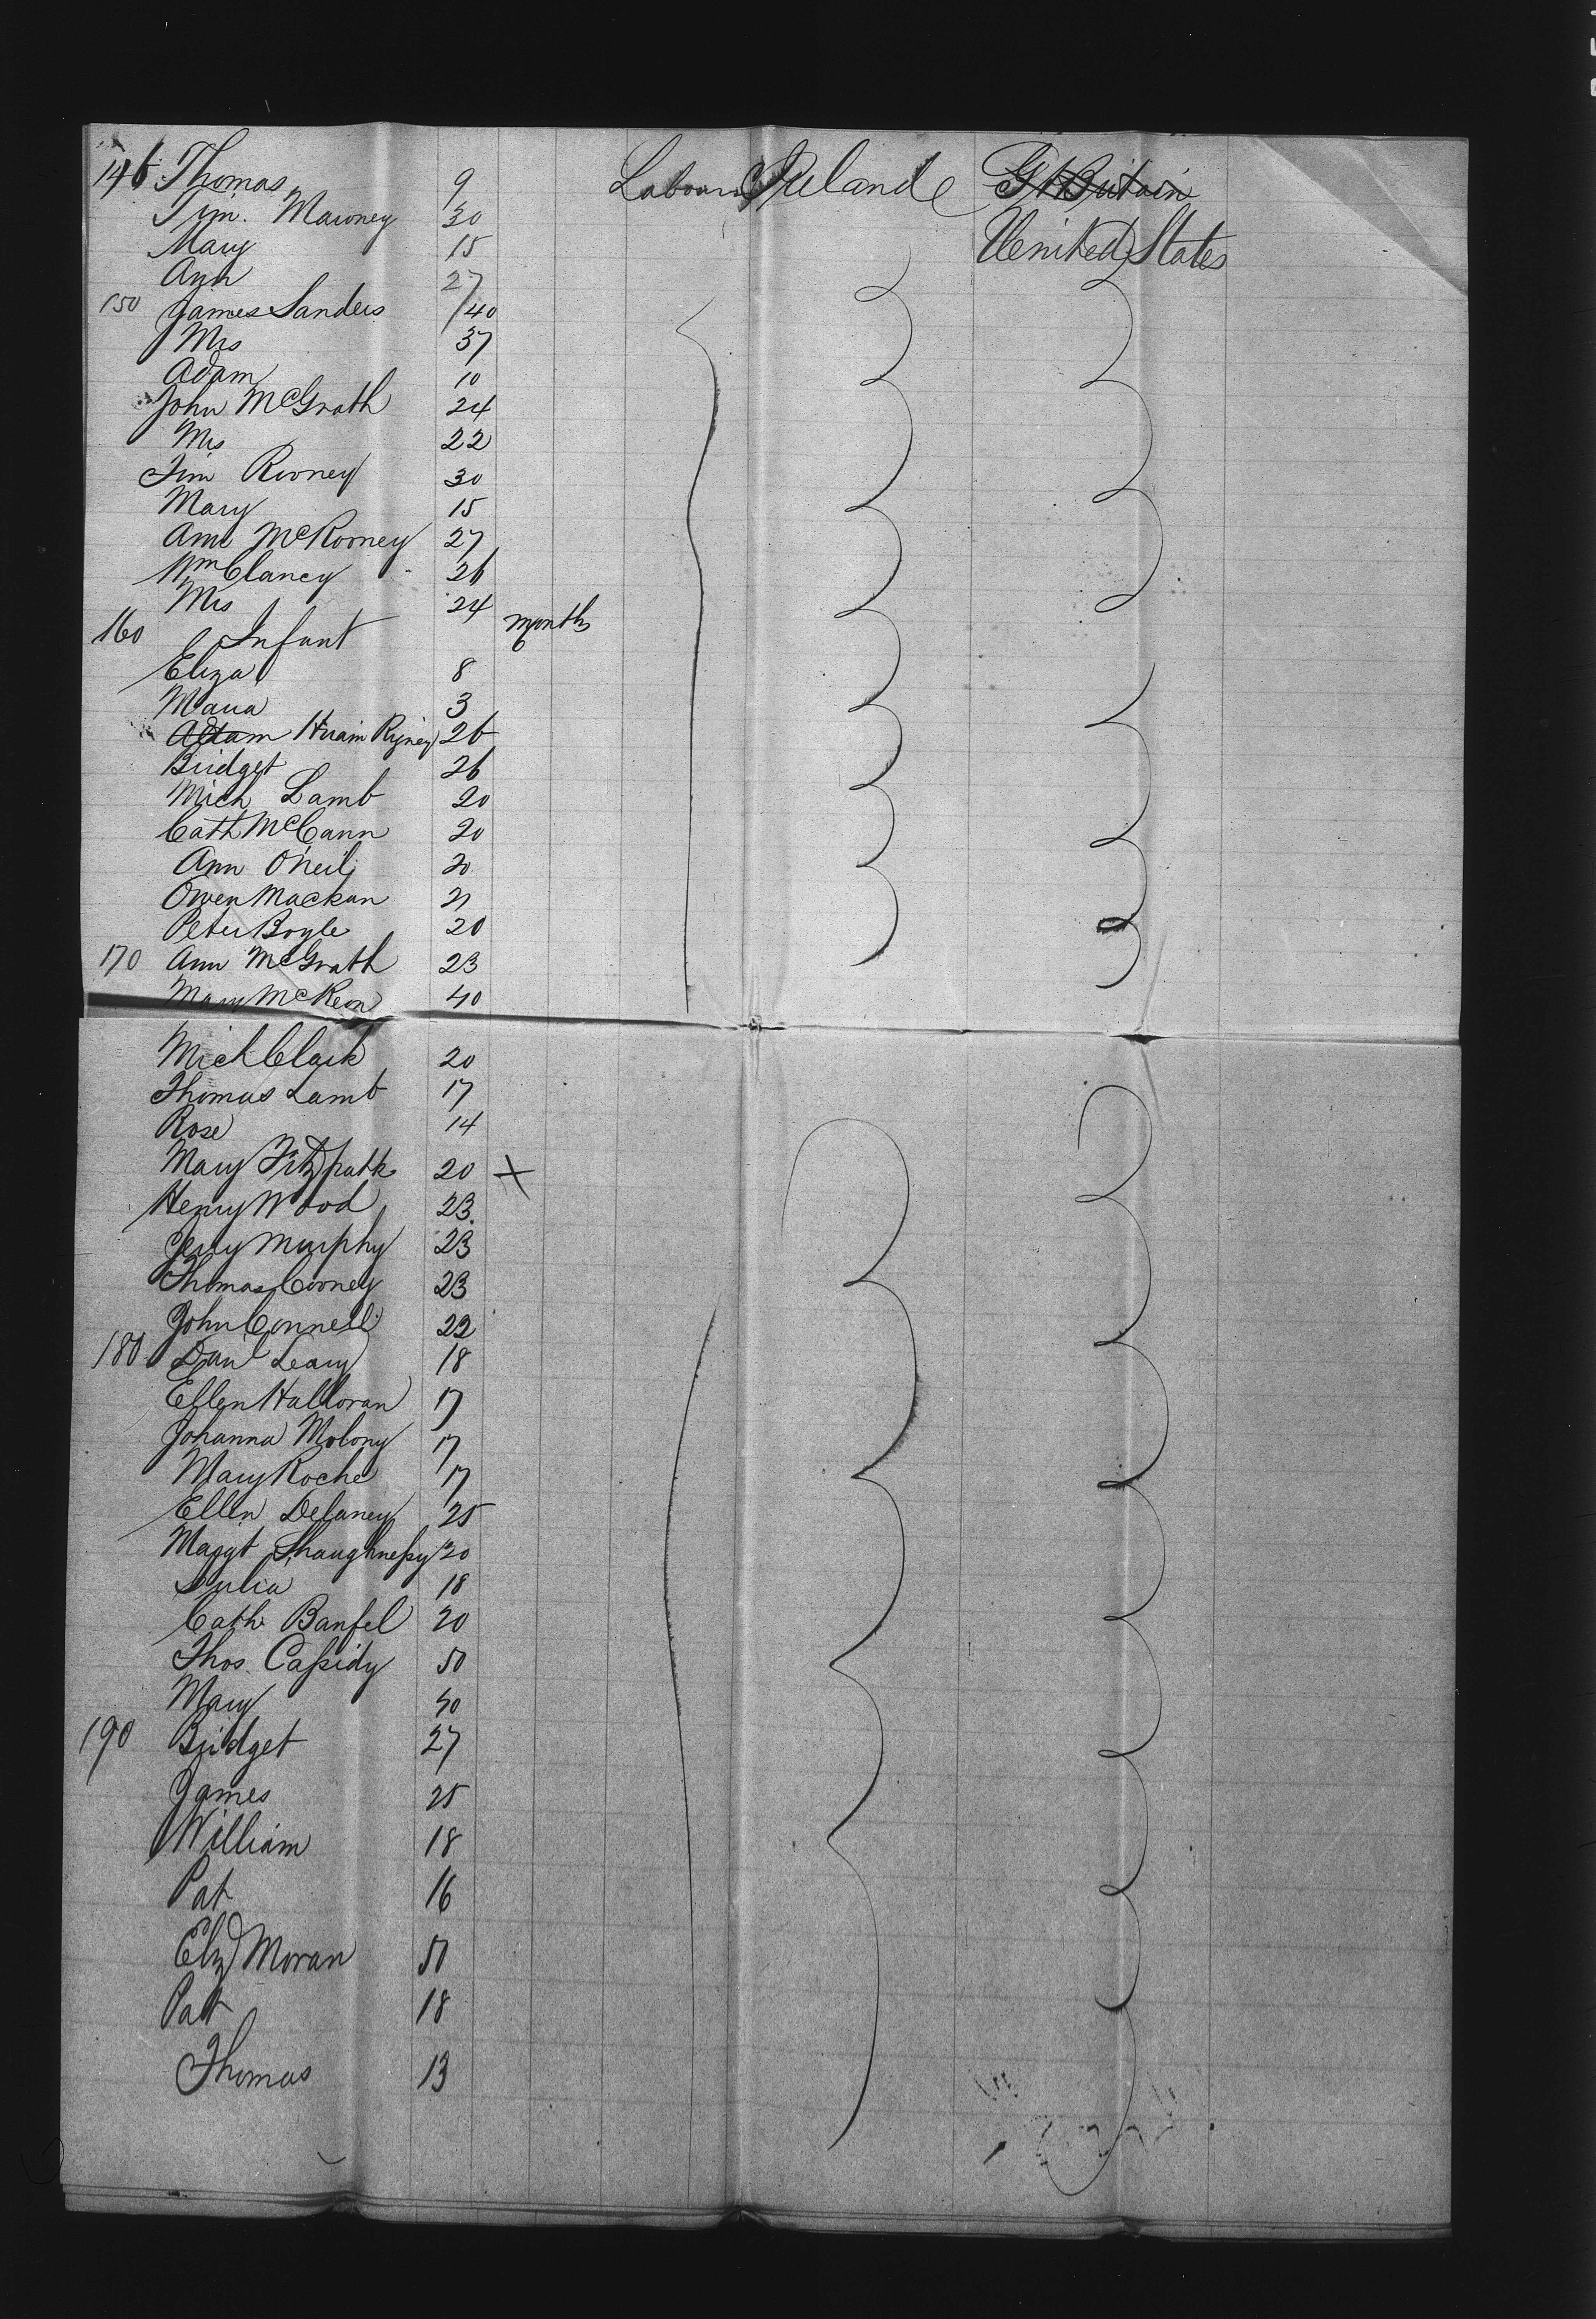 146 Thomas 9 Labourer Ireland G Britain
Tim. Mawney 30
Mary 15 United States
Ann 27
150 James Sanders 40
Mrs 37
Adam 10
John McGrath 24
Mrs 22
Tim Rooney 30
Mary 15
Ann McRooney 27
Wm Clancy 26
Mrs 24
160 Infant 6 months
Eliza 8
Maria 3
Adam Hiram Ryney 26
Bridget 26
Mich Lamb 20
Cath McCann 20
Ann O'Neil 20
Owen Mackan 21
Peter Boyle 20
170 Ann McGrath 23
Mary McKeon 40
Mick Clark 20
Thomas Lamb 17
Rose 14
Mary Fitzpatk 20 X
Henry Wood 23
Jerry Murphy 23
Thomas Cooney 23
John Connell 22
180 Danl Leary 18
Ellen Halloran 17
Johanna Molony 17
Mary Roche 17
Ellen Delaney 25
Margt Shaughnessy 20
Julia 18
Cath Banfel 20
Thos. Cassidy 50
Mary 50
190 Bridget 27
James 25
William 18
Pat 16
Elz Moran 50
Pat 18
Thomas 13